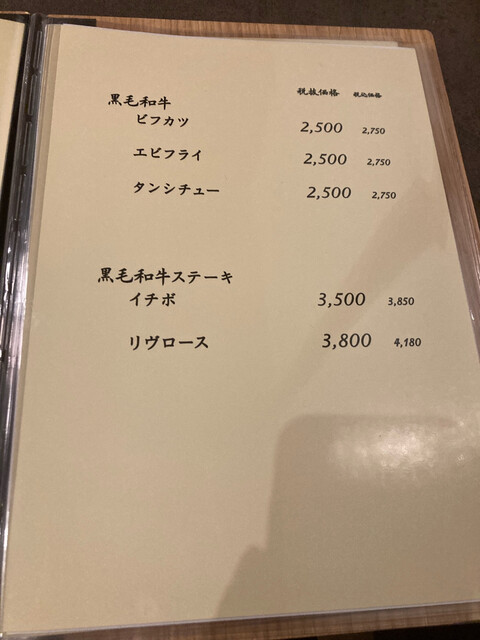 税抜価格 税込価格
黒毛和牛
ビフカツ 2,500 2,750
エビフライ 2,500 2,750
タンシチュー 2,500 2,750
黒毛和牛ステーキ
イチボ 3,500 3,850
リヴロース 3,800 4,180